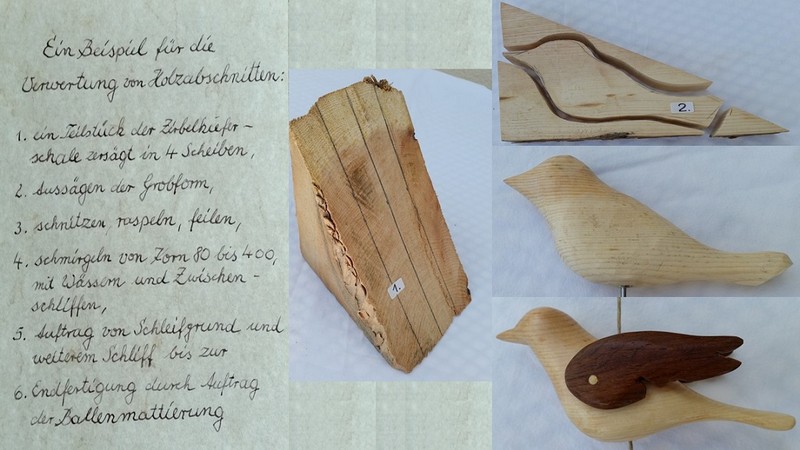 Ein Beispiel für die
Verwertung von Holzabschnitten:
1. ein Teilstück der Zirbelkiefer-
schale zersägt in 4 Scheiben,
2. Aussägen der Grobform,
3. schnitzen, raspeln, feilen,
4. schmirgeln von Korn 80 bis 400,
mit Wässern und Zwischen-
schliffen,
5. Auftrag von Schleifgrund und
weiterem Schliff bis zur
6. Endfertigung durch Auftrag
der Ballenmattierung
1.
2.